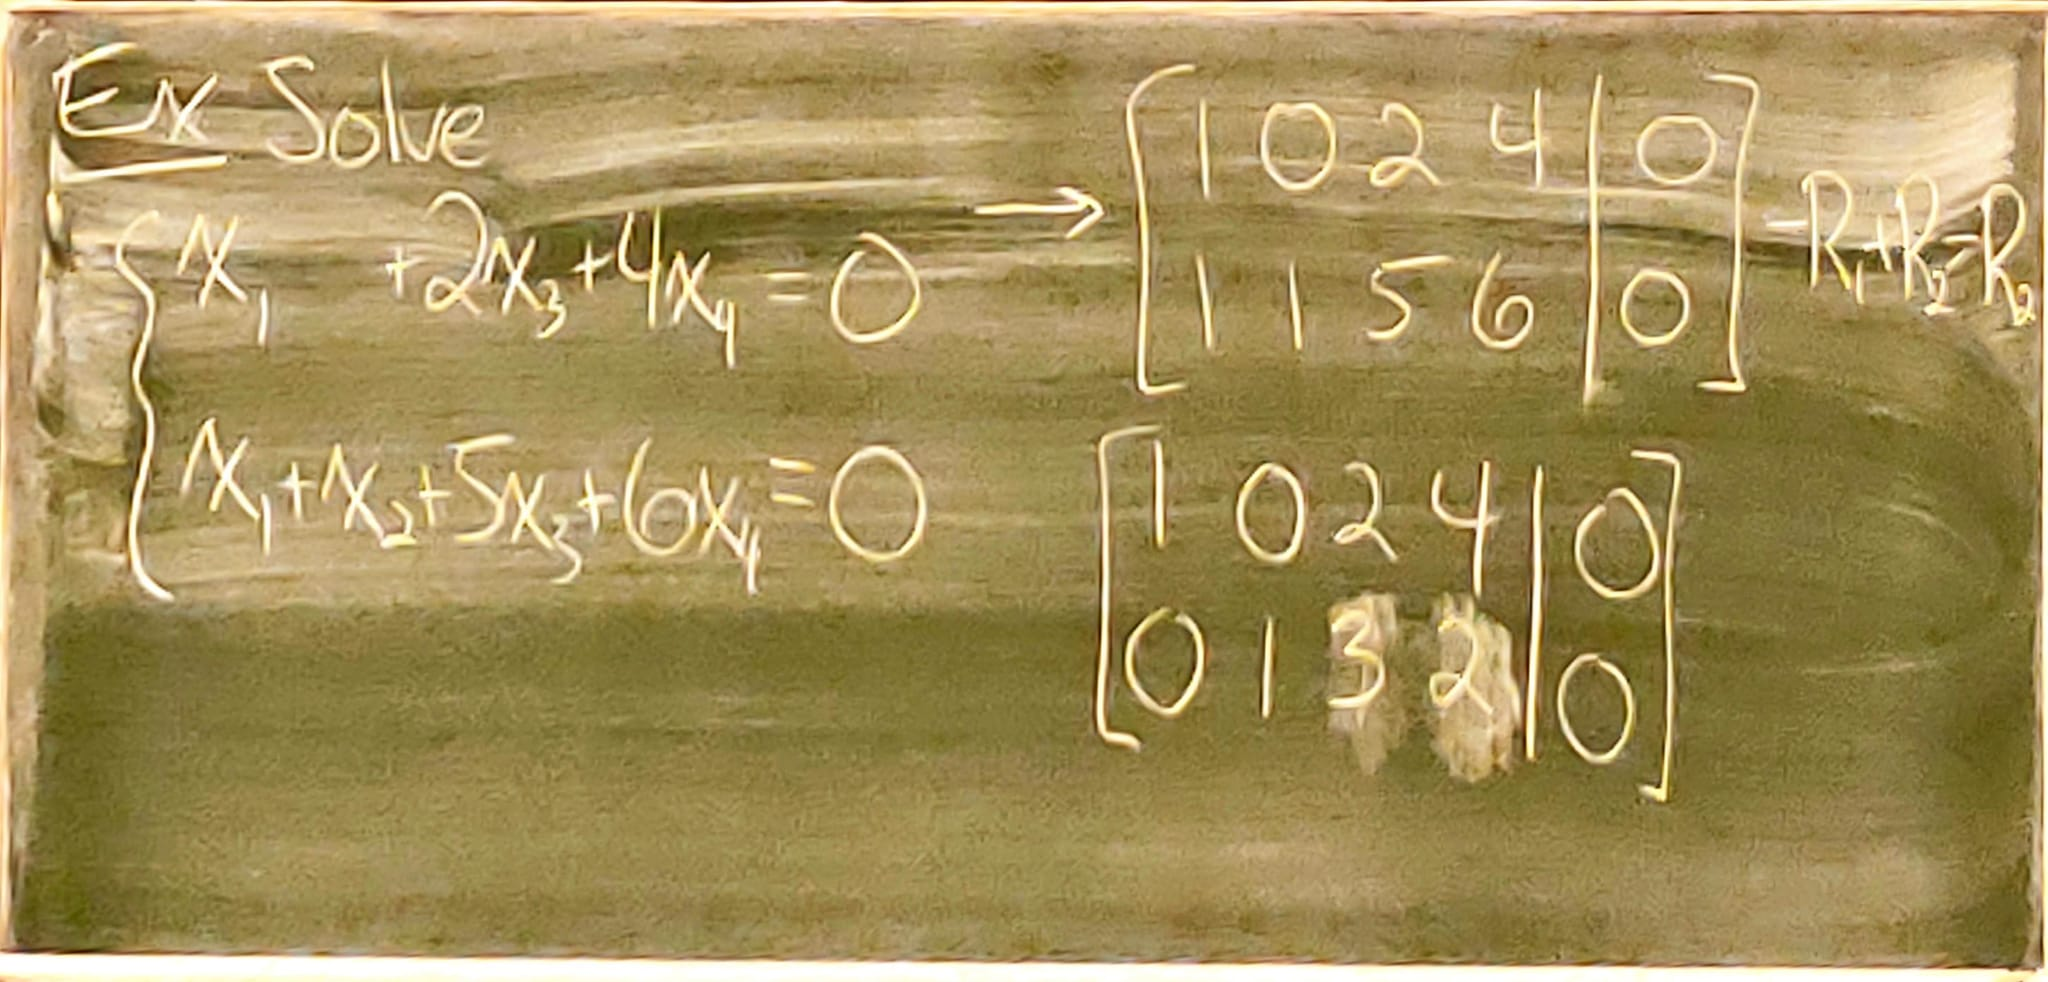 Ex Solve
x₁ +2x₃+4x₄=0
x₁+x₂+5x₃+6x₄=0
→ [1 0 2 4 | 0]
[1 1 5 6 | 0]
-R₁+R₂=R₂
[1 0 2 4 | 0]
[0 1 3 2 | 0]